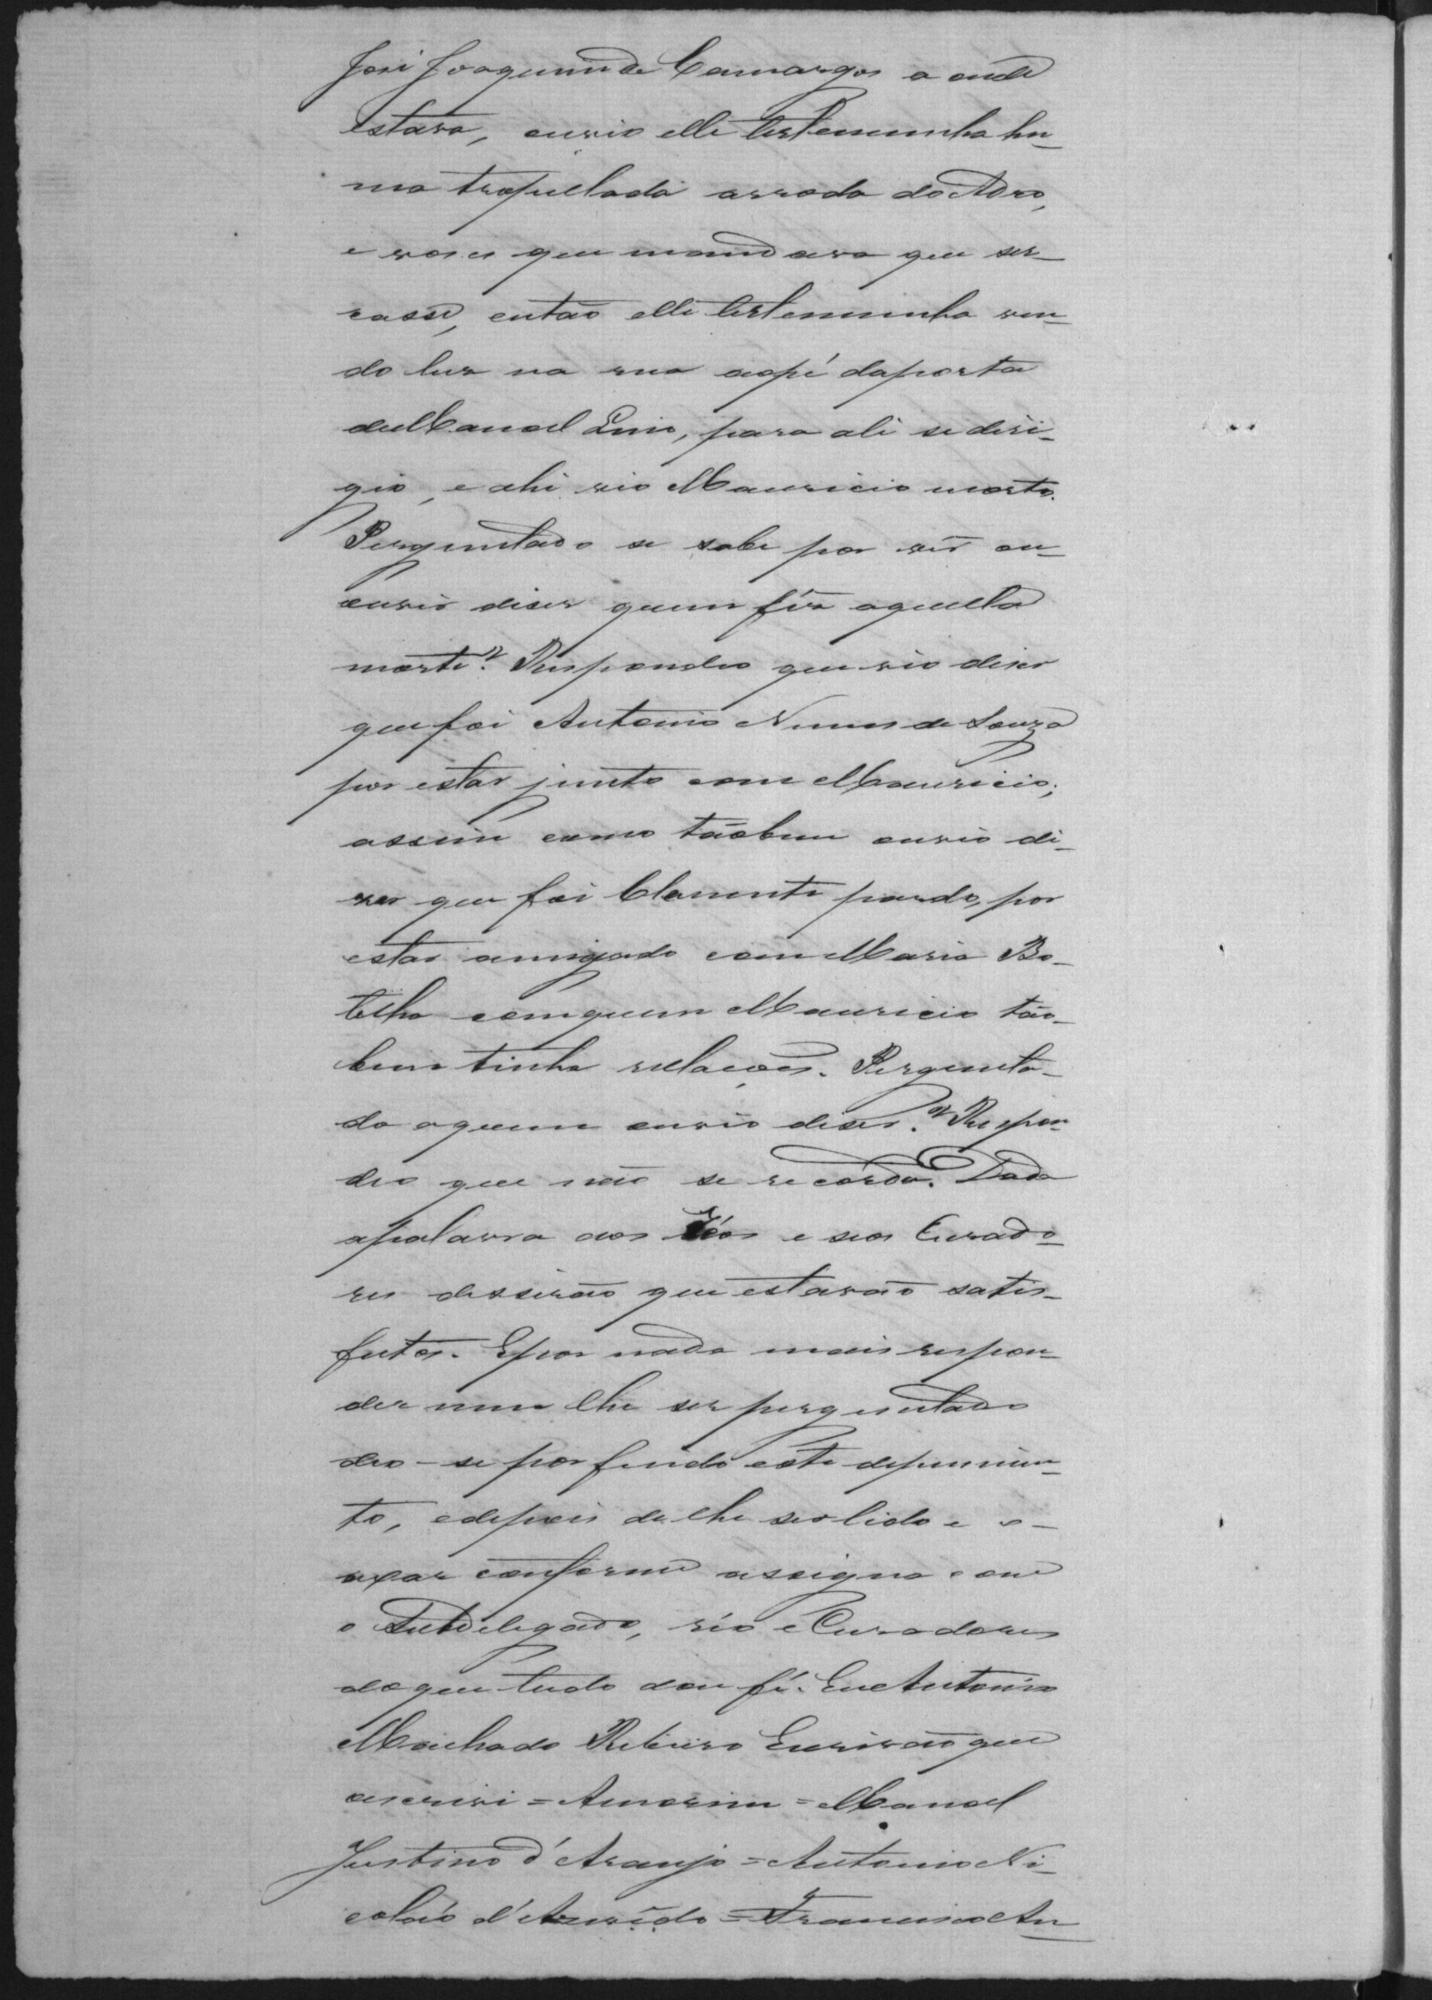 José Joaquim de Camargos a onde
estava, ouvio elle testemunha hu-
ma tropellada arroda do Adro,
e voses que mandava que ser-
casse, então elle testemunha ven-
do lus na rua aopé daporta
deManoel Luis, para ali se diri-
gio, e ahi vio Mauricio morto.
Perguntado se sabe por vêr ou
ouvio diser quem fês aquella
morte? Respondeo que vio diser
que foi Antonio Nunes de Souza
por estar junto com Mauricio;
assim como tãobem ouvio di-
ser que foi Clemente pardo, por
estar amigado com Maria Bo-
telha comquem Mauricio tão-
bem tinha relaçoes. Pergunta-
do aquem ouvio diser? Respon-
deo que não se recorda. Dada
apalavra aos Réos e seos Curado-
res disserão que estavão satis-
feitos. Epor nada mais respon-
der nem lhe ser perguntado
deo-se por findo este depoimen-
to, edepois de lhe ser lido e o
axar conforme assigna com
o Subdelegado, réo e Curadores
doque tudo dou fé. Eu Antonio
Machado Ribeiro Escrivão que
escrevi = Amorim = Manoel
Justino d'Araujo = Antonio Ni-
coláo d'Azevêdo = Francisco An